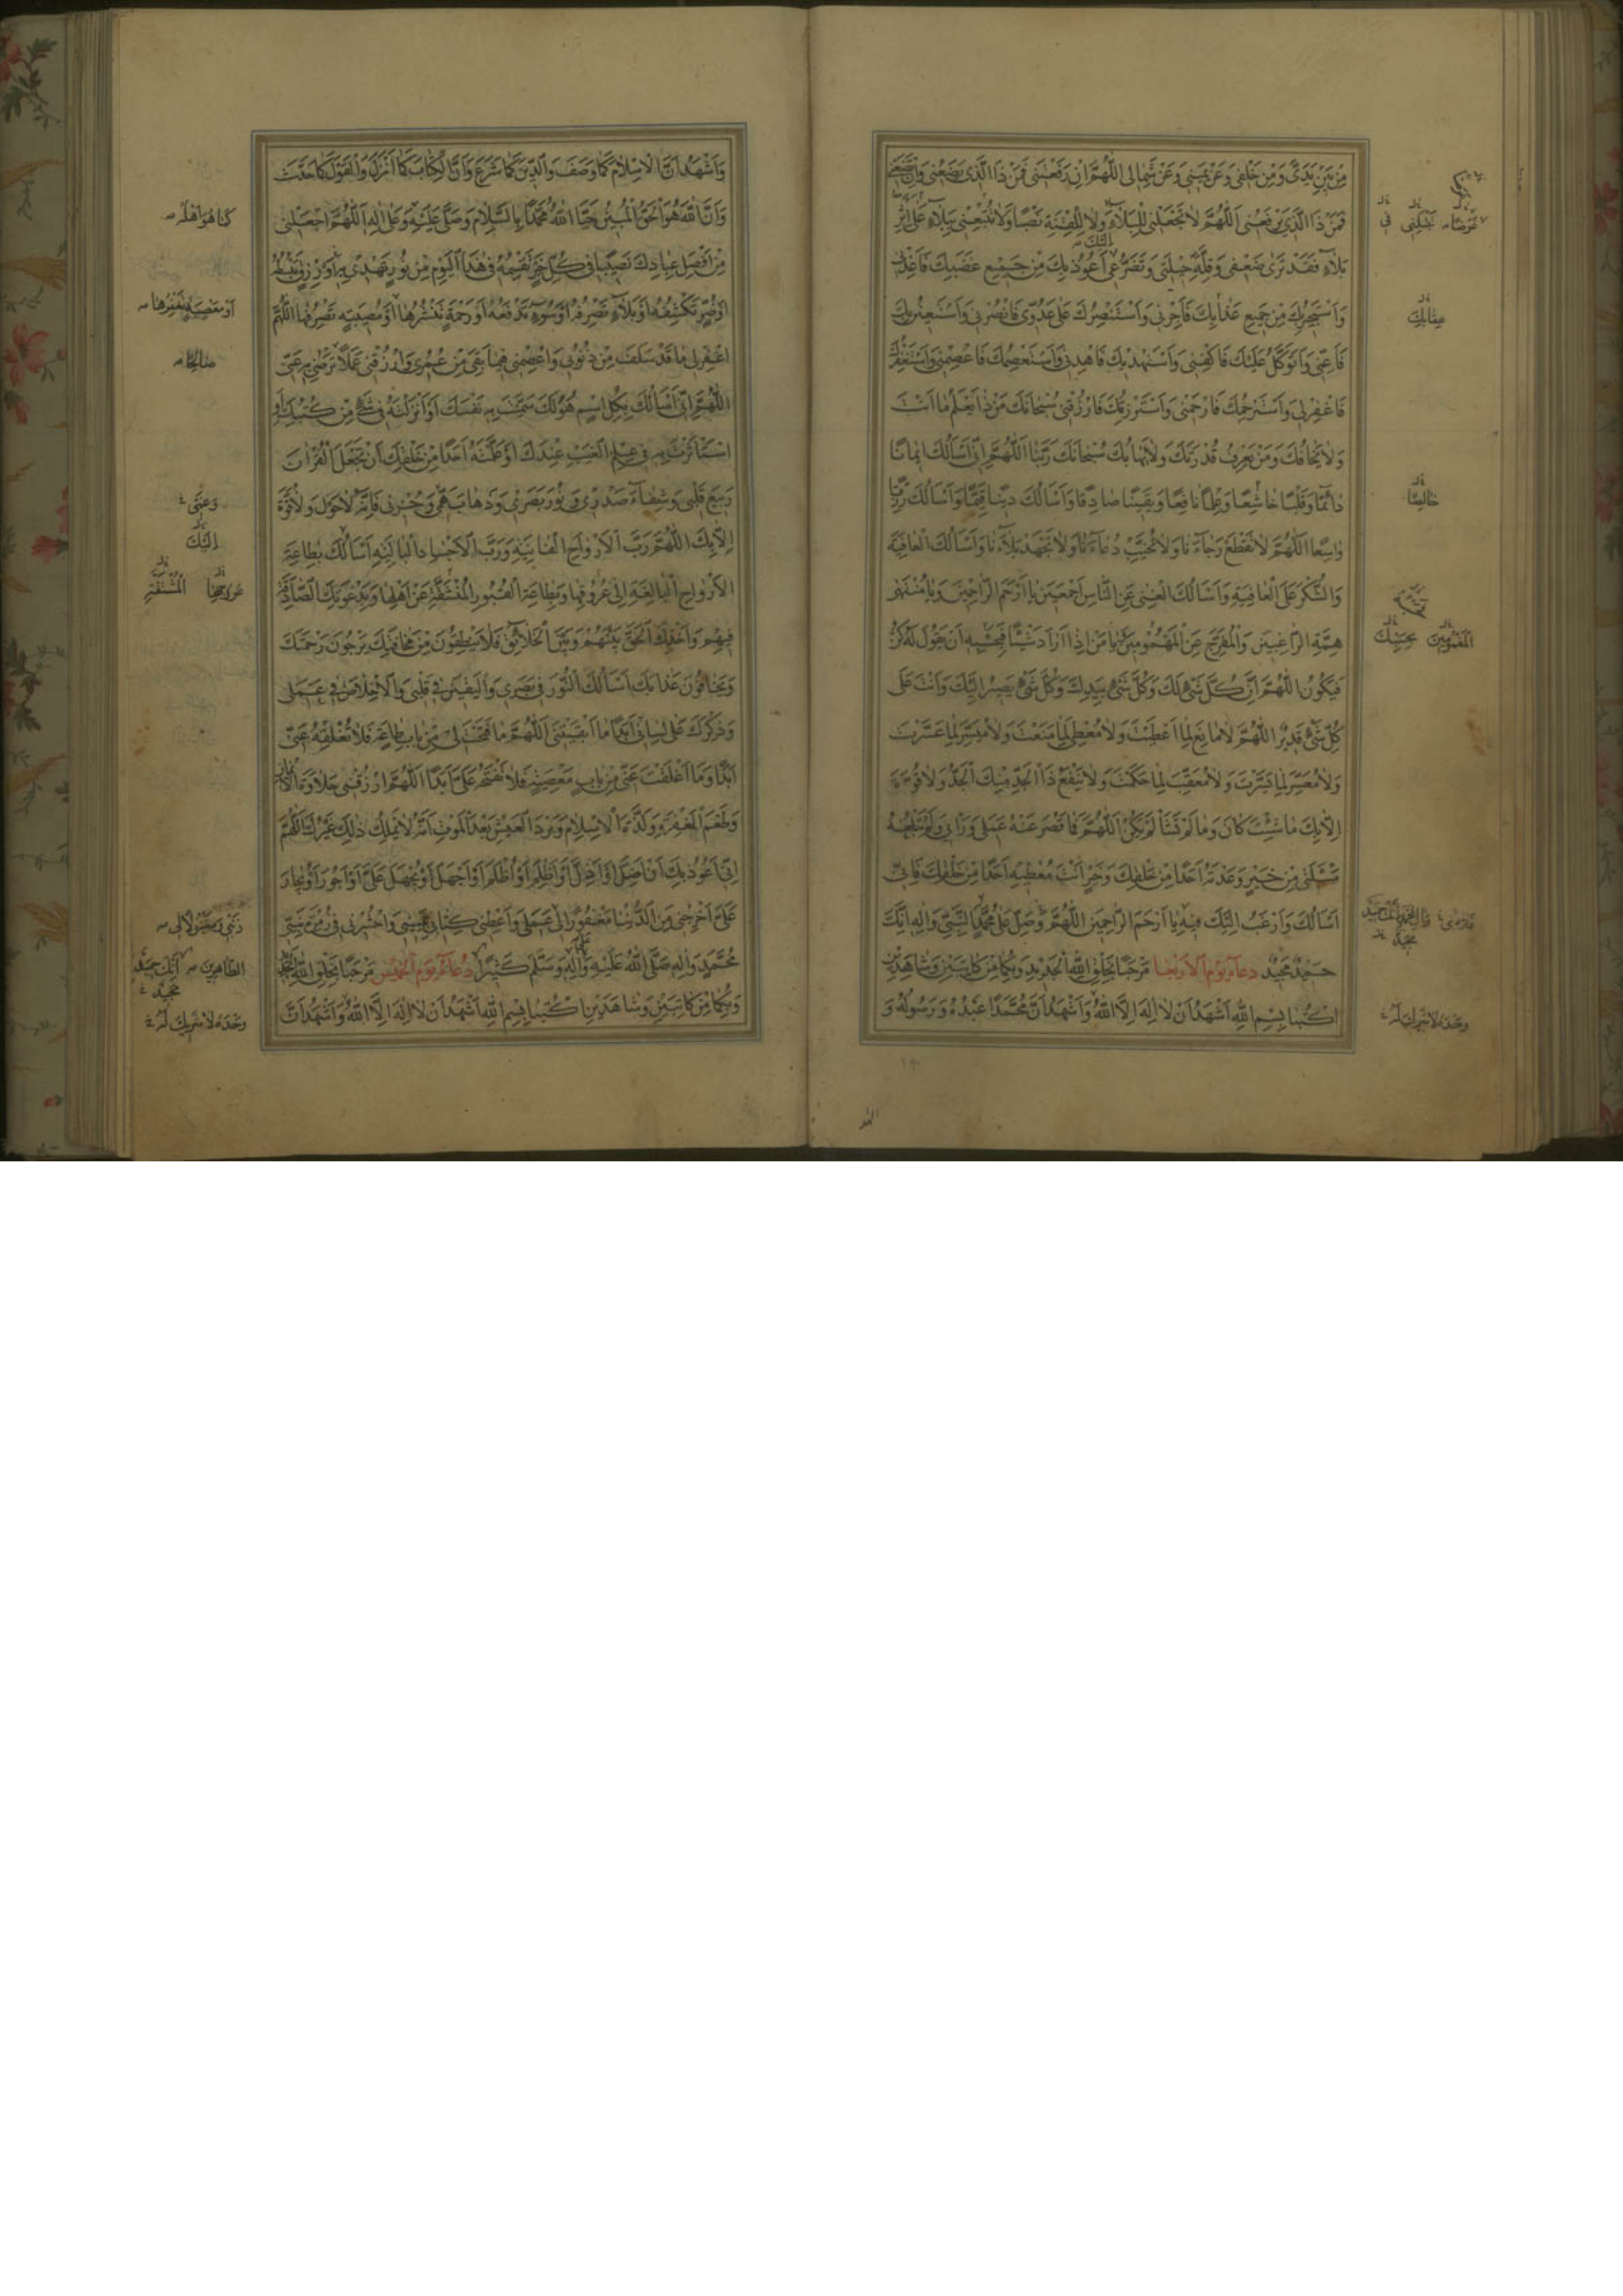 مِنْ بَيْنِ يَدَيَّ وَمِنْ خَلْفِي وَعَنْ يَمِينِي وَعَنْ شِمَالِي اَللّٰهُمَّ اِنْ رَفَعْتَنِي فَمَنْ ذَا الَّذِي يَضَعُنِي وَاِنْ وَضَعْتَنِي
فَمَنْ ذَا الَّذِي يَرْفَعُنِي اَللّٰهُمَّ لَا تَجْعَلْنِي لِلْبَلَاءِ وَلَا لِلْفِتْنَةِ نَصَبًا وَلَا تُتْبِعْنِي بِبَلَاءٍ عَلَى اَثَرِ
بَلَاءٍ فَقَدْ تَرَى ضَعْفِي وَقِلَّةَ حِيلَتِي وَتَضَرُّعِي اَعُوذُ بِكَ مِنْ جَمِيعِ غَضَبِكَ فَاَعِذْنِي
وَاَسْتَجِيرُ بِكَ مِنْ جَمِيعِ عَذَابِكَ فَاَجِرْنِي وَاَسْتَنْصِرُكَ عَلَى عَدُوِّي فَانْصُرْنِي وَاَسْتَعِينُ بِكَ
فَاَعِنِّي وَاَتَوَكَّلُ عَلَيْكَ فَاكْفِنِي وَاَسْتَهْدِيكَ فَاهْدِنِي وَاَسْتَعْصِمُكَ فَاعْصِمْنِي وَاَسْتَغْفِرُكَ
فَاغْفِرْ لِي وَاَسْتَرْحِمُكَ فَارْحَمْنِي وَاَسْتَرْزِقُكَ فَارْزُقْنِي سُبْحَانَكَ مَنْ ذَا يَعْلَمُ مَا اَنْتَ
وَلَا يَخَافُكَ وَمَنْ يَعْرِفُ قُدْرَتَكَ وَلَا يَهَابُكَ سُبْحَانَكَ رَبَّنَا اَللّٰهُمَّ اِنِّي اَسْاَلُكَ اِيمَانًا
دَائِمًا وَقَلْبًا خَاشِعًا وَعِلْمًا نَافِعًا وَيَقِينًا صَادِقًا وَاَسْاَلُكَ دِينًا قَيِّمًا وَاَسْاَلُكَ رِزْقًا
وَاسِعًا اَللّٰهُمَّ لَا تَقْطَعْ رَجَاءَنَا وَلَا تُخَيِّبْ دُعَاءَنَا وَلَا تَجْهَدْ بَلَاءَنَا وَاَسْاَلُكَ الْعَافِيَةَ
وَالشُّكْرَ عَلَى الْعَافِيَةِ وَاَسْاَلُكَ الْغِنَى عَنِ النَّاسِ اَجْمَعِينَ يَا اَرْحَمَ الرَّاحِمِينَ وَيَا مُنْتَهَى
هِمَّةِ الرَّاغِبِينَ وَالْمُفَرِّجَ عَنِ الْمَهْمُومِينَ يَا مَنْ اِذَا اَرَادَ شَيْئًا فَحَسْبُهُ اَنْ يَقُولَ لَهُ كُنْ
فَيَكُونُ اَللّٰهُمَّ اِنَّ كُلَّ شَيْءٍ لَكَ وَكُلَّ شَيْءٍ بِيَدِكَ وَكُلَّ شَيْءٍ يَصِيرُ اِلَيْكَ وَاَنْتَ عَلَى
كُلِّ شَيْءٍ قَدِيرٌ اَللّٰهُمَّ لَا مَانِعَ لِمَا اَعْطَيْتَ وَلَا مُعْطِيَ لِمَا مَنَعْتَ وَلَا مُيَسِّرَ لِمَا عَسَّرْتَ
وَلَا مُعَسِّرَ لِمَا يَسَّرْتَ وَلَا مُعَقِّبَ لِمَا حَكَمْتَ وَلَا يَنْفَعُ ذَا الْجَدِّ مِنْكَ الْجَدُّ وَلَا قُوَّةَ
اِلَّا بِكَ مَا شِئْتَ كَانَ وَمَا لَمْ تَشَاْ لَمْ يَكُنْ اَللّٰهُمَّ فَمَا قَصُرَ عَنْهُ عَمَلِي وَرَاْيِي وَلَمْ تَبْلُغْهُ
مَسْئَلَتِي مِنْ خَيْرٍ وَعَدْتَهُ اَحَدًا مِنْ خَلْقِكَ وَخَيْرٍ اَنْتَ مُعْطِيهِ اَحَدًا مِنْ خَلْقِكَ فَاِنِّي
اَسْاَلُكَ وَاَرْغَبُ اِلَيْكَ فِيهِ يَا اَرْحَمَ الرَّاحِمِينَ اَللّٰهُمَّ وَصَلِّ عَلَى مُحَمَّدٍ النَّبِيِّ وَاٰلِهِ اِنَّكَ
حَمِيدٌ مَجِيدٌ دعاء يوم الاربعا مَرْحَبًا بِخَلْقِ اللّٰهِ الْجَدِيدِ وَبِكُمَا مِنْ كَاتِبَيْنِ وَشَاهِدَيْنِ
اُكْتُبَا بِسْمِ اللّٰهِ اَشْهَدُ اَنْ لَا اِلٰهَ اِلَّا اللّٰهُ وَاَشْهَدُ اَنَّ مُحَمَّدًا عَبْدُهُ وَرَسُولُهُ وَ
عقابك
خالصًا
وحده لا شريك له
وَاَشْهَدُ اَنَّ الْاِسْلَامَ كَمَا وَصَفَ وَالدِّينَ كَمَا شَرَعَ وَاَنَّ الْكِتَابَ كَمَا اَنْزَلَ وَالْقَوْلَ كَمَا حَدَّثَ
وَاَنَّ اللّٰهَ هُوَ الْحَقُّ الْمُبِينُ حَيَّا اللّٰهُ مُحَمَّدًا بِالسَّلَامِ وَصَلَّى عَلَيْهِ وَعَلَى اٰلِهِ اَللّٰهُمَّ اجْعَلْنِي
مِنْ اَفْضَلِ عِبَادِكَ نَصِيبًا فِي كُلِّ خَيْرٍ تَقْسِمُهُ فِي هٰذَا الْيَوْمِ مِنْ نُورٍ تَهْدِي بِهِ اَوْ رِزْقٍ تَبْسُطُهُ
اَوْ ضُرٍّ تَكْشِفُهُ اَوْ بَلَاءٍ تَصْرِفُهُ اَوْ سُوءٍ تَدْفَعُهُ اَوْ رَحْمَةٍ تَنْشُرُهَا اَوْ مُصِيبَةٍ تَصْرِفُهَا اَللّٰهُمَّ
اغْفِرْ لِي مَا قَدْ سَلَفَ مِنْ ذُنُوبِي وَاعْصِمْنِي فِيمَا بَقِيَ مِنْ عُمُرِي وَارْزُقْنِي عَمَلًا تَرْضَى بِهِ عَنِّي
اَللّٰهُمَّ اِنِّي اَسْاَلُكَ بِكُلِّ اسْمٍ هُوَ لَكَ سَمَّيْتَ بِهِ نَفْسَكَ اَوْ اَنْزَلْتَهُ فِي شَيْءٍ مِنْ كُتُبِكَ اَوِ
اسْتَاْثَرْتَ بِهِ فِي عِلْمِ الْغَيْبِ عِنْدَكَ اَوْ عَلَّمْتَهُ اَحَدًا مِنْ خَلْقِكَ اَنْ تَجْعَلَ الْقُرْاٰنَ
رَبِيعَ قَلْبِي وَشِفَاءَ صَدْرِي وَنُورَ بَصَرِي وَذَهَابَ هَمِّي وَحُزْنِي فَاِنَّهُ لَا حَوْلَ وَلَا قُوَّةَ
اِلَّا بِكَ اَللّٰهُمَّ رَبَّ الْاَرْوَاحِ الْفَانِيَةِ وَرَبَّ الْاَجْسَادِ الْبَالِيَةِ اَسْاَلُكَ بِطَاعَةِ
الْاَرْوَاحِ الْبَالِغَةِ اِلَى عُرُوقِهَا وَبِطَاعَةِ الْقُبُورِ الْمُنْشَقَّةِ عَنْ اَهْلِهَا وَبِدَعْوَتِكَ الصَّادِقَةِ
فِيهِمْ وَاَخْذِكَ الْحَقَّ بَيْنَهُمْ وَبَيْنَ الْخَلَائِقِ فَلَا يَنْطِقُونَ مِنْ مَخَافَتِكَ يَرْجُونَ رَحْمَتَكَ
وَيَخَافُونَ عَذَابَكَ اَسْاَلُكَ النُّورَ فِي بَصَرِي وَالْيَقِينَ فِي قَلْبِي وَالْاِخْلَاصَ فِي عَمَلِي
وَذِكْرَكَ عَلَى لِسَانِي اَبَدًا مَا اَبْقَيْتَنِي اَللّٰهُمَّ مَا فَتَحْتَ لِي مِنْ بَابِ طَاعَةٍ فَلَا تُغْلِقْهُ عَنِّي
اَبَدًا وَمَا اَغْلَقْتَ عَنِّي مِنْ بَابِ مَعْصِيَةٍ فَلَا تَفْتَحْهُ عَلَيَّ اَبَدًا اَللّٰهُمَّ ارْزُقْنِي حَلَاوَةَ الْاِيمَانِ
وَطَعْمَ الْمَغْفِرَةِ وَلَذَّةَ الْاِسْلَامِ وَبَرْدَ الْعَيْشِ بَعْدَ الْمَوْتِ اَنَّهُ لَا يَمْلِكُ ذٰلِكَ غَيْرُكَ اَللّٰهُمَّ
اِنِّي اَعُوذُ بِكَ اَنْ اَضِلَّ اَوْ اَذِلَّ اَوْ اَظْلِمَ اَوْ اُظْلَمَ اَوْ اَجْهَلَ اَوْ يُجْهَلَ عَلَيَّ اَوْ اَجُورَ اَوْ يُجَارَ
عَلَيَّ اَخْرِجْنِي مِنَ الدُّنْيَا مَغْفُورًا لِي عَمَلِي وَاَعْطِنِي كِتَابِي بِيَمِينِي وَاحْشُرْنِي فِي زُمْرَةِ نَبِيِّي
مُحَمَّدٍ وَاٰلِهِ صَلَّى اللّٰهُ عَلَيْهِ وَاٰلِهِ وَسَلَّمَ كَثِيرًا دعاء يوم الخميس مَرْحَبًا بِخَلْقِ اللّٰهِ الْجَدِيدِ
وَبِكُمَا مِنْ كَاتِبَيْنِ وَشَاهِدَيْنِ اُكْتُبَا بِسْمِ اللّٰهِ اَشْهَدُ اَنْ لَا اِلٰهَ اِلَّا اللّٰهُ وَاَشْهَدُ اَنَّ
كما هو اهله
صالحًا
اليك
الطاهرين انك حميد
مجيد
وحده لا شريك له